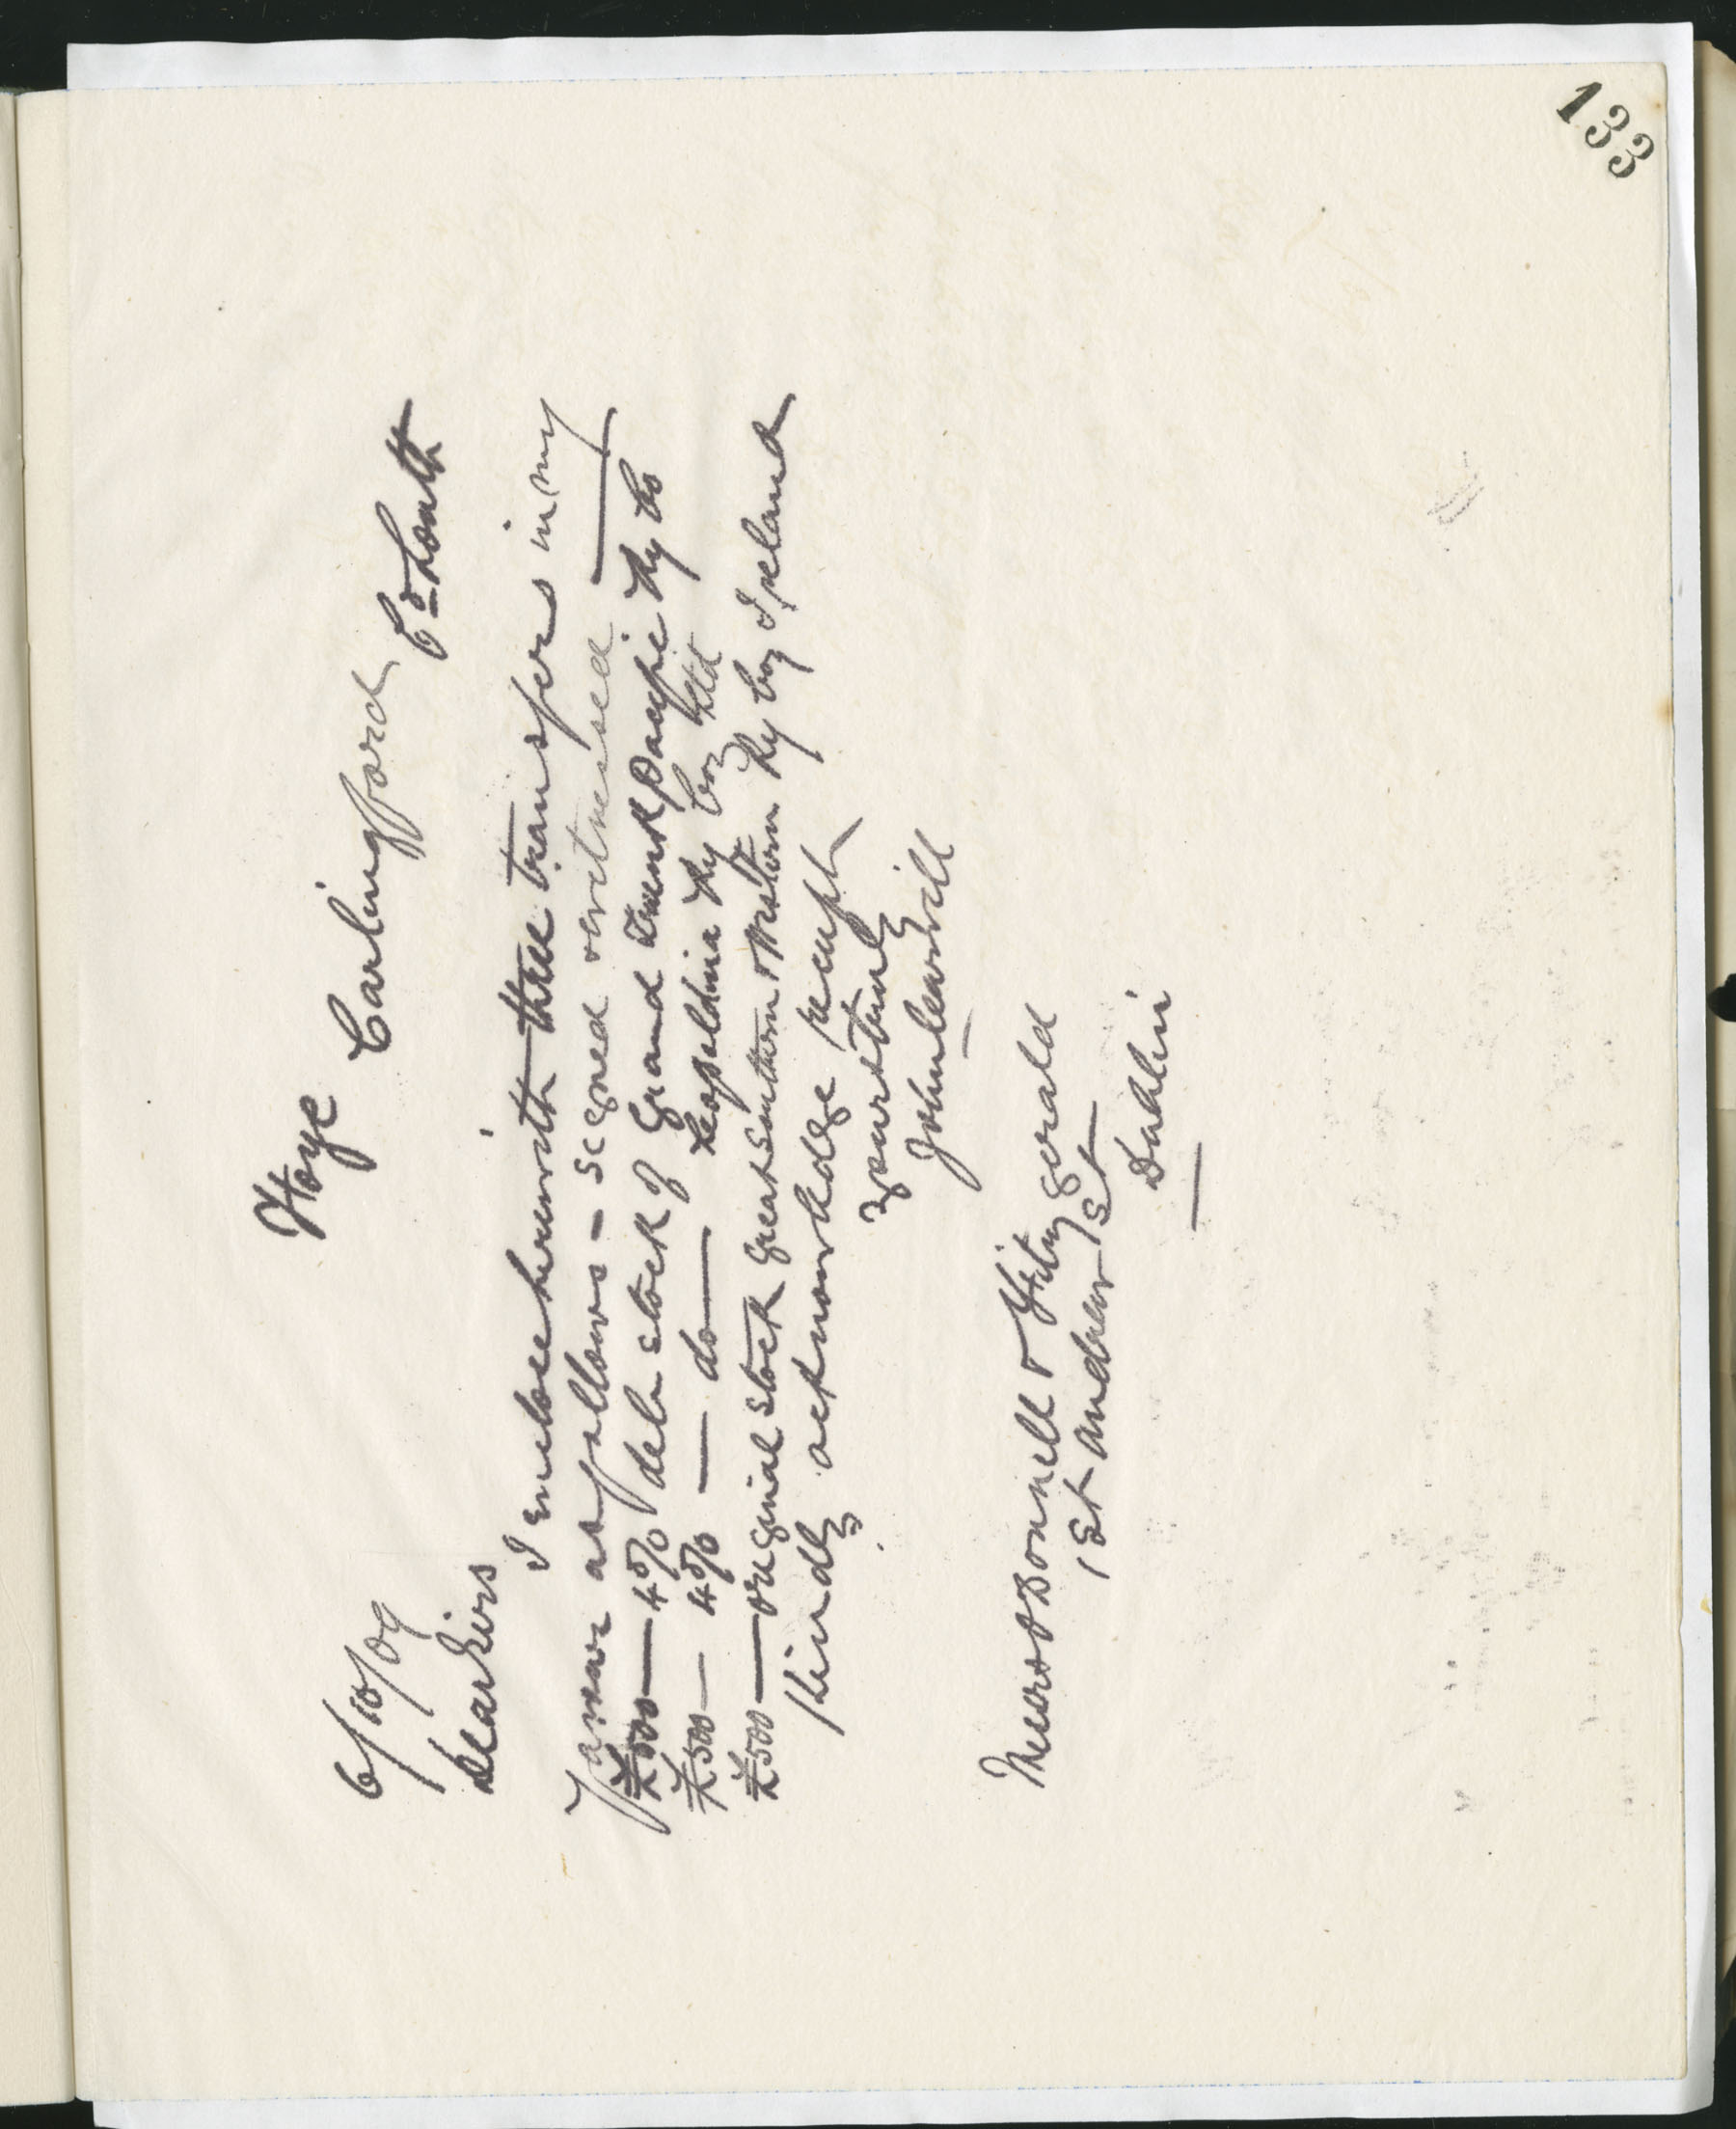 133
Ffoye
Carlingford
Co Louth
6/10/09
Dear Sirs
I enclose herewith three transfers in my
favour as follows - signed & witnessed
£500 — 4% deb stock of Grand Trunk Pacific Ry Co
£500 — 4% — do — Leopoldina Ry Coy Ltd
£500 — original stock Great Southern & Western Ry Coy Ireland
Kindly acknowledge receipt
yours truly
John
Messrs O Donnell & Fitzgerald
1 St Andrew St
Dublin